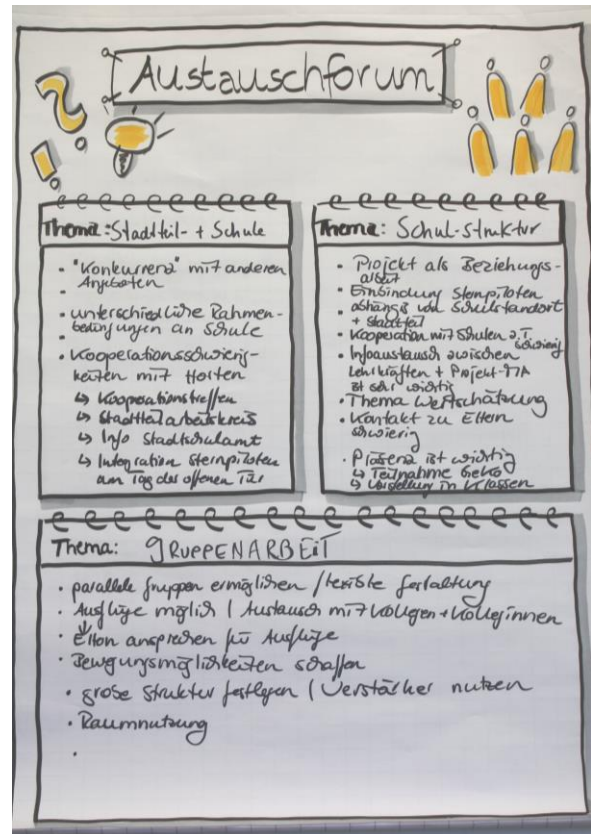 Austauschforum
Thema: Stadtteil- + Schule
• "Konkurrenz" mit anderen
• Angeboten
• unterschiedliche Rahmen-
bedingungen an Schule
• Kooperationsschwierig-
keiten mit Horten
↳ Kooperationstreffen
↳ Stadtteilarbeitskreis
↳ Info Stadtschulamt
↳ Integration Sternpiloten
am Tag der offenen Tür
Thema: Schul-struktur
• Projekt als Beziehungs-
arbeit
• Einbindung Sternpiloten
abhängig von Schulstandort
+ Stadtteil
• Kooperation mit Schulen z.T.
schwierig
• Infoaustausch zwischen
Lehrkräften + Projekt-MA
ist sehr wichtig
• Thema Wertschätzung
• Kontakt zu Eltern
schwierig
• Präsenz ist wichtig
↳ Teilnahme GeKo
↳ Vorstellung in Klassen
Thema: GRUPPENARBEIT
• parallele Gruppen ermöglichen / flexible Gestaltung
• Ausflüge möglich / Austausch mit Kollegen + Kolleginnen
• Eltern ansprechen für Ausflüge
• Bewegungsmöglichkeiten schaffen
• große Struktur festlegen / Verstärker nutzen
• Raumnutzung